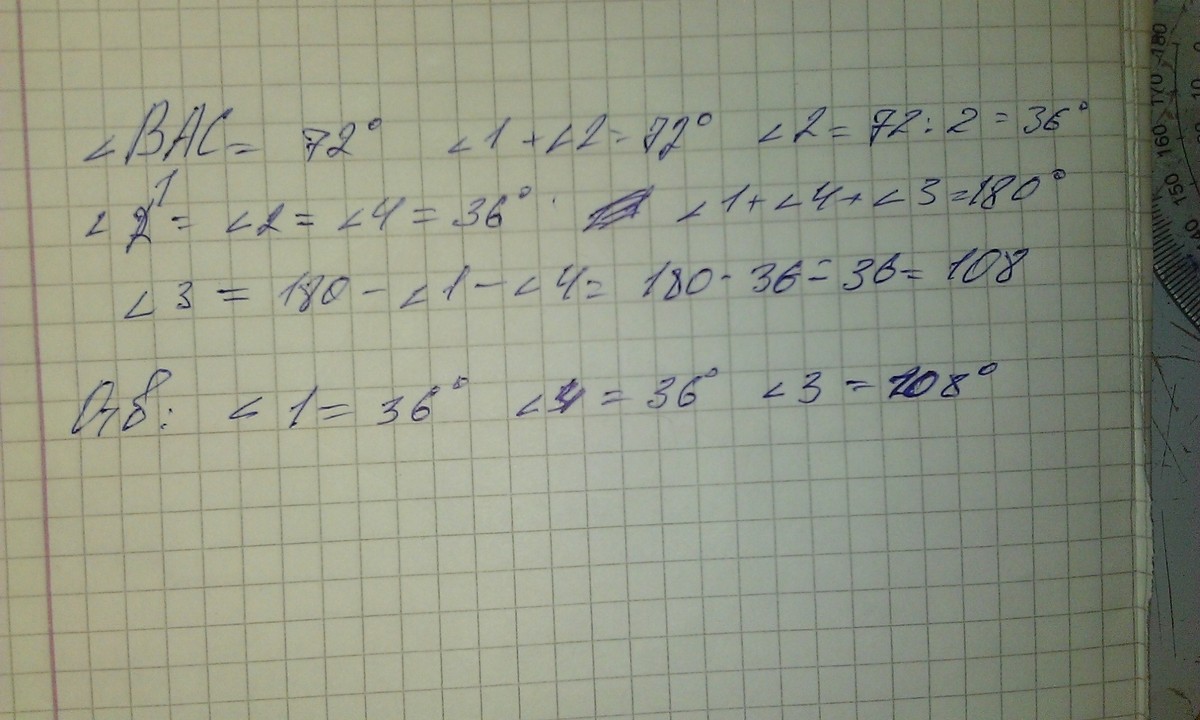 ∠BAC = 72° ∠1 + ∠2 = 72° ∠2 = 72 : 2 = 36°
∠1 = ∠2 = ∠4 = 36° ∠1 + ∠4 + ∠3 = 180°
∠3 = 180 - ∠1 - ∠4 = 180 - 36 = 36 = 108
Отв: ∠1 = 36° ∠4 = 36° ∠3 = 108°
180
170
160
150
0
10